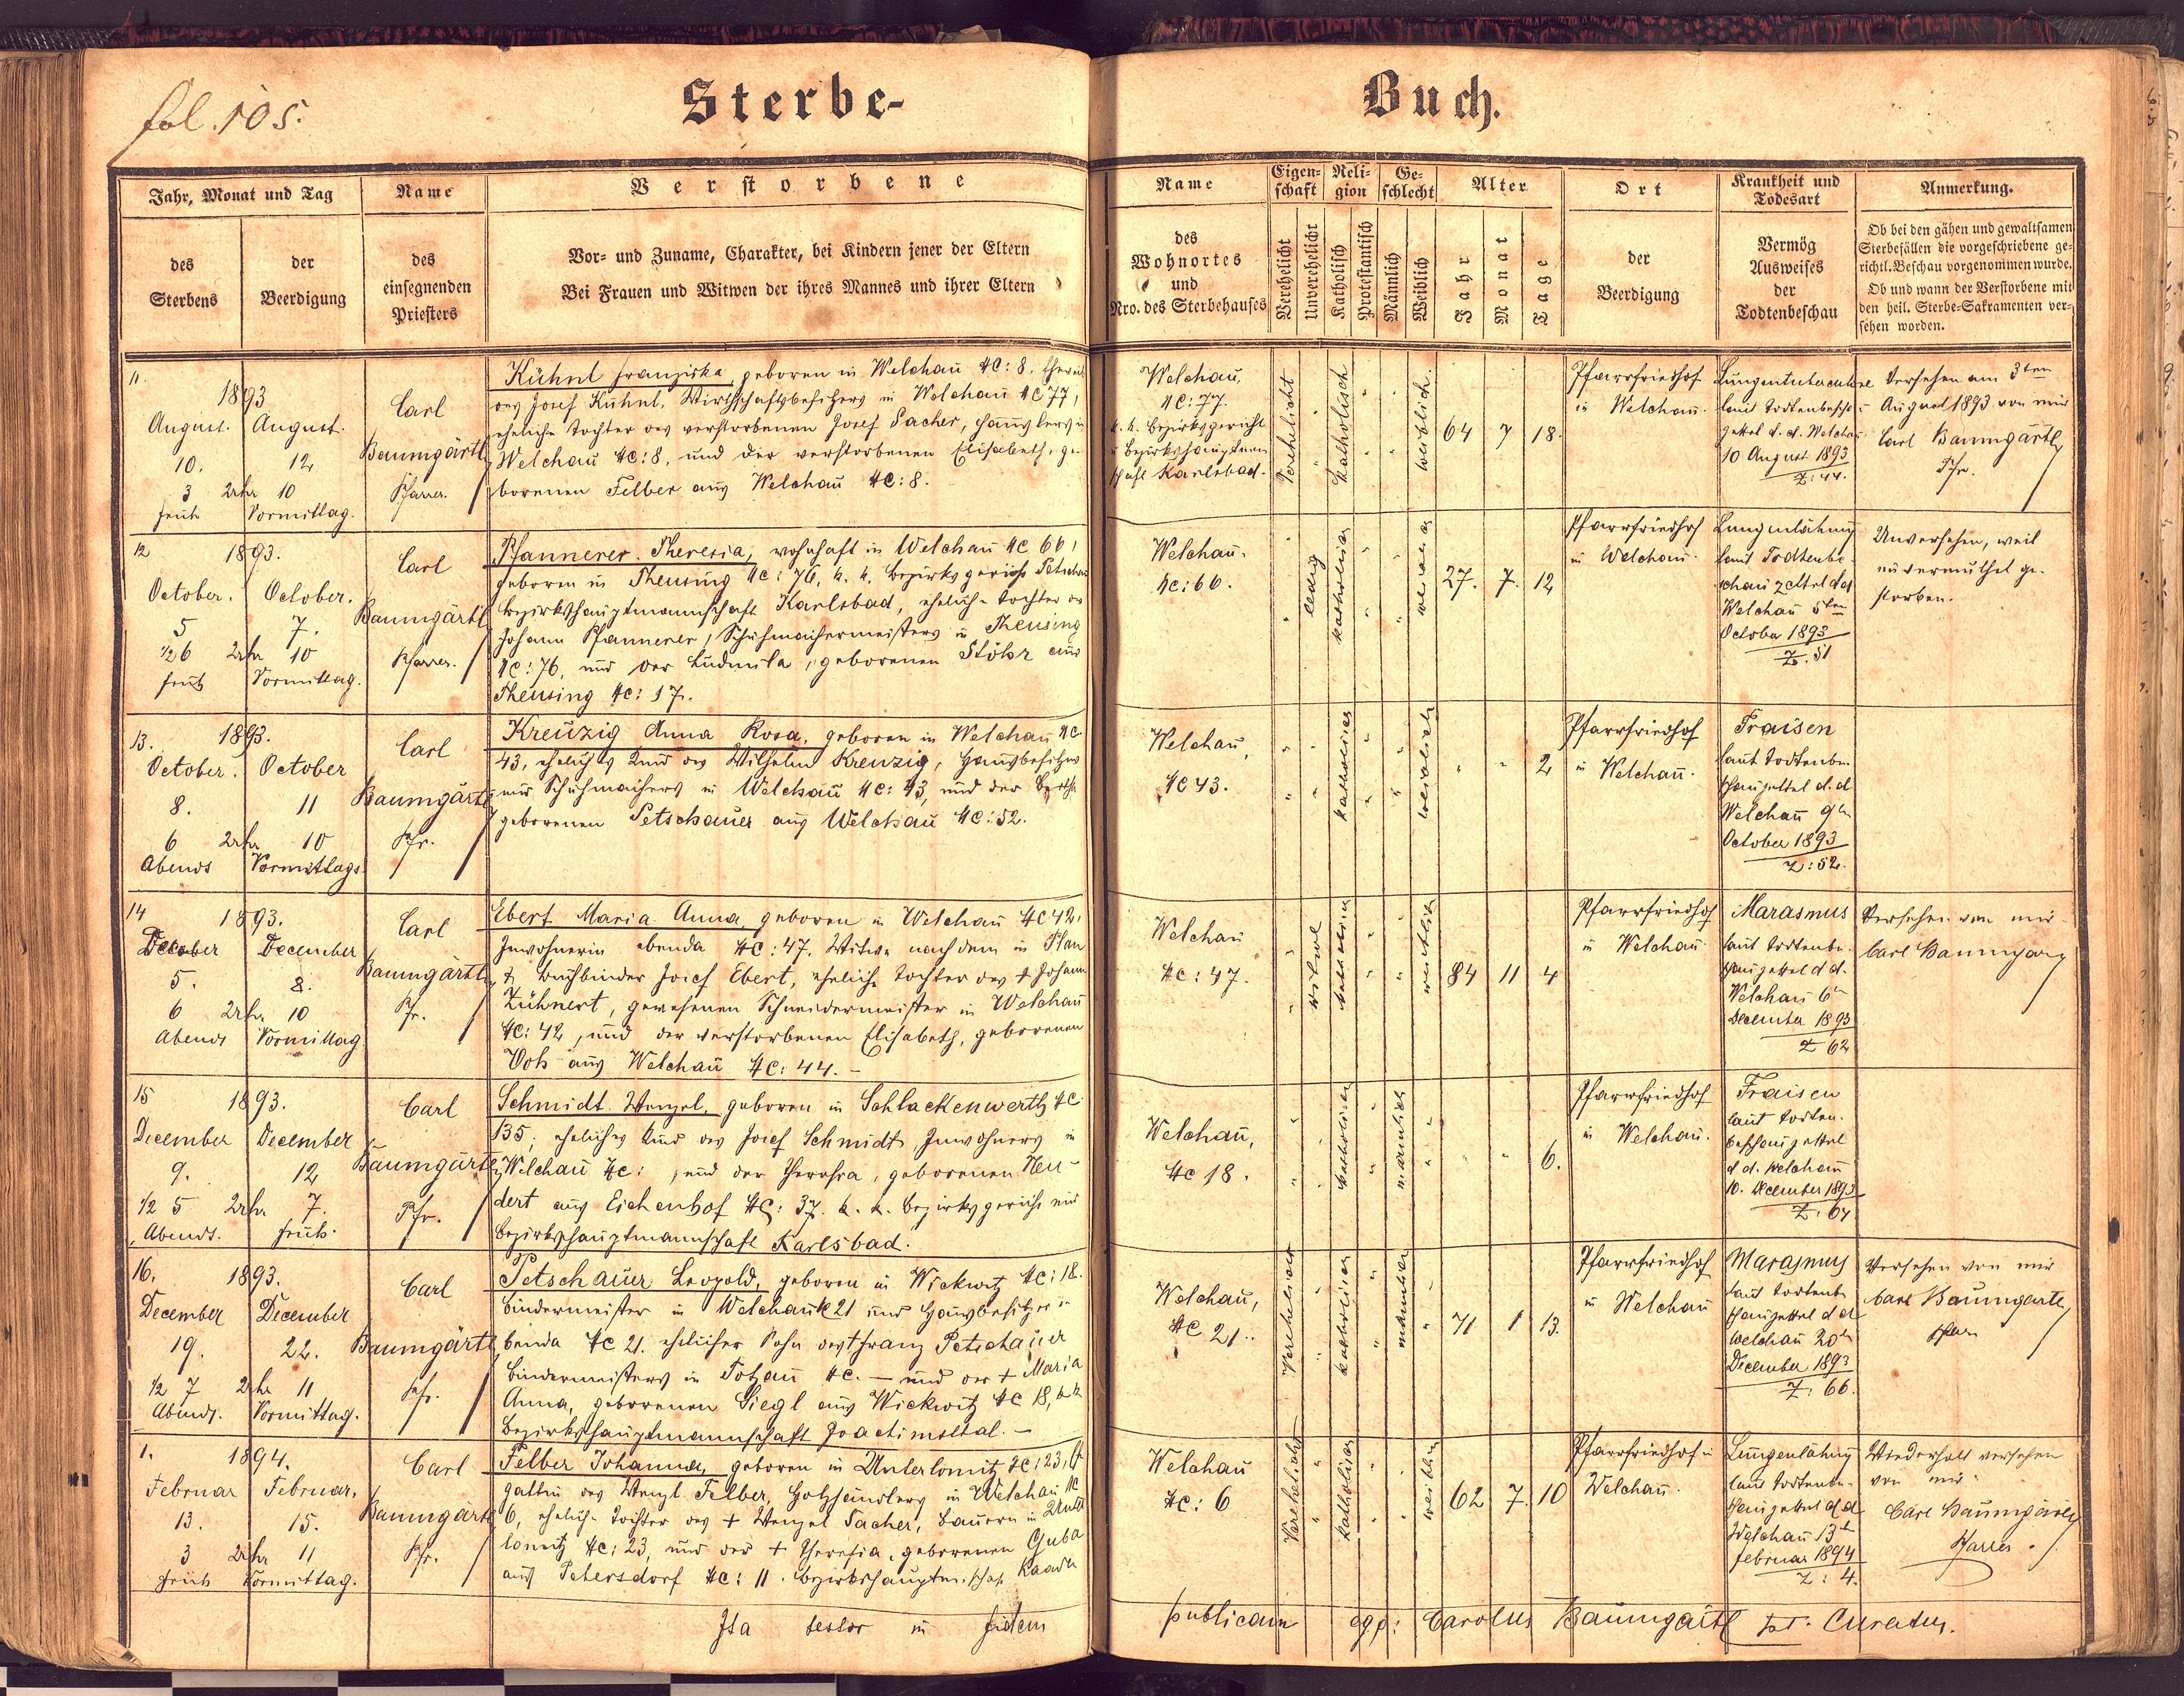 fol. 105.
Sterbe-
Buch.
Jahr, Monat und Tag
Name
Verstorbene
des Sterbens
der Beerdigung
des einsegnenden Priesters
Vor- und Zuname, Charakter, bei Kindern jener der Eltern
Bei Frauen und Witwen der ihres Mannes und ihrer Eltern
Name
des Wohnortes und Nro. des Sterbehauses
Eigenschaft
Verehelicht
Unverehelicht
Religion
Katholisch
Protestantisch
Geschlecht
Männlich
Weiblich
Alter
Jahr
Monat
Tage
Ort
der Beerdigung
Krankheit und Todesart
Vermög Ausweises der Todtenbeschau
Anmerkung.
Ob bei den gähen und gewaltsamen
Sterbefällen die vorgeschriebene ge-
richtl. Beschau vorgenommen wurde.
Ob und wann der Verstorbene mit
den heil. Sterbe-Sakramenten ver-
sehen worden.
11.
1893
August. August.
10. 12
3 Uhr 10
früh Vormittag.
Carl
Baumgärtl
Pfarrer.
Kühnl Franziska, geboren in Welchau NC: 8.
des Josef Kühnl, Wirthschaftsbesitzers in Welchau NC 77,
eheliche Tochter des verstorbenen Josef Sacher,
Welchau NC: 8, und der verstorbenen Elisabeth, ge-
borenen Felber aus Welchau NC: 8.
Welchau,
NC: 77.
k. k. Bezirksgericht
u Bezirkshauptmann
schaft Karlsbad.
Verehelicht
katholisch
weiblich.
64 7 18.
Pfarrfriedhof
in Welchau.
Lungentuberculose
laut Todtenbeschau
zettel d. d. Welchau
10 August 1893
Z: 44.
Versehen am 3ten
August 1893 von mir
Carl Baumgärtl,
Pfr.
12
1893.
October. October.
5 7.
1/2 6 Uhr 10
früh Vormittag.
Carl
Baumgärtl
Pfarrer.
Pfannerer Theresia, wohnhaft in Welchau NC 66,
geboren in Theusing NC: 76, k. k. Bezirksgericht Petschau
Bezirkshauptmannschaft Karlsbad, eheliche Tochter des
Johann Pfannerer, Schuhmachermeisters in Theusing
NC: 76, und der Ludmila, geborenen Stöhr aus
Theusing NC: 17.
Welchau.
NC: 66.
ledig
katholisch
27. 7. 12
Pfarrfriedhof
in Welchau.
Lungenlähmung
laut Todtenbe-
schau zettel dd
Welchau 5ten
October 1893
Z. 51
Unversehen, weil
unvermuthet ge-
storben.
13.
1893.
October. October
8. 11
6 Uhr 10
Abends Vormittags.
Carl
Baumgärtl
Pfr.
Kreuzig Anna Rosa, geboren in Welchau NC
43, eheliches Kind des Wilhelm Kreuzig, Hausbesitzers
und Schuhmachers in Welchau NC: 43, und der Bertha
geborenen Petschauer aus Welchau NC: 52.
Welchau,
NC 43.
katholisch
weiblich
2
Pfarrfriedhof
in Welchau.
Fraisen
laut Todtenbe-
schauzettel d. d
Welchau 9ten
October 1893
Z: 52.
14
1893.
December December
5. 8.
6 Uhr 10
Abends Vormittag.
Carl
Baumgärtl
Pfr.
Ebert Maria Anna, geboren in Welchau NC 42,
Inwohnerin ebenda NC: 47. Witwe nach dem in
† Buchbinder Josef Ebert, eheliche Tochter des † Johann
Zühnert, gewesenen Schneidermeister in Welchau
NC: 42, und der verstorbenen Elisabeth, geborenen
aus Welchau NC: 44. —
Welchau
NC: 47.
weiblich
84 11 4
Pfarrfriedhof
in Welchau.
Marasmus
laut Todtenbe-
schauzettel d d.
Welchau 6ten
December 1893
Z 62
Versehen von mir
Carl Baumgärtl
15
1893.
December December
9. 12
1/2 5 Uhr 7.
Abends. früh.
Carl
Baumgärtl
Pfr.
Schmidt Wenzel, geboren in Schlackenwerth NC
135, eheliches Kind des Josef Schmidt, Inwohners in
Welchau NC: , und der Theresia, geborenen Neu-
dert aus Eichenhof NC: 37. k. k. Bezirksgericht und
Bezirkshauptmannschaft Karlsbad.
Welchau,
NC 18.
katholisch
männlich
6.
Pfarrfriedhof
in Welchau.
Fraisen
laut Todten-
beschauzettel
d d. Welchau
10. December 1893
Z: 64
16.
1893.
December December
19. 22.
1/2 7 Uhr 11
Abends. Vormittag.
Carl
Baumgärtl
Pfr.
Petschauer Leopold, geboren in Wickwitz NC: 18.
Bindermeister in Welchau NC 21 und Hausbesitzer
benda NC 21. ehelicher Sohn des † Franz Petschauer
Bindermeisters in Totzau NC. — und der † Maria
Anna, geborenen Siegl aus Wickwitz NC 18, k k
Bezirkshauptmannschaft Joachimsthal. —
Welchau,
NC 21.
Verehelicht
katholisch
männlich
71 1 13.
Pfarrfriedhof
in Welchau
Marasmus
laut Todtenbe-
schauzettel d d
Welchau 20ten
December 1893
Z: 66.
Versehen von mir
Carl Baumgärtl,
Pfarrer
1.
1894.
Februar Februar.
13. 15.
3 Uhr 11
früh Vormittag.
Carl
Baumgärtl
Pfr.
Felber Johanna, geboren in Unterlomitz NC: 23,
gattin des Wenzl Felber, Holzhändlers in Welchau NC
6, eheliche Tochter des † Wenzel Sacher, Bauern in Unter
lomitz NC: 23, und der † Theresia, geborenen Guba
aus Petersdorf NC: 11. Bezirkshauptm.schaft Kaaden
Welchau
NC: 6
Verehelicht
katholisch
weiblich
62 7. 10
Pfarrfriedhof in
Welchau.
Lungenlähmung
laut Todtenbe-
schauzettel d d
Welchau 13ten
Februar 1894
Z: 4.
Wiederholt versehen
von mir
Carl Baumgärtl
Pfarrer.
Ita testor in fidem
publicam Carolus Baumgärtl Curatus.